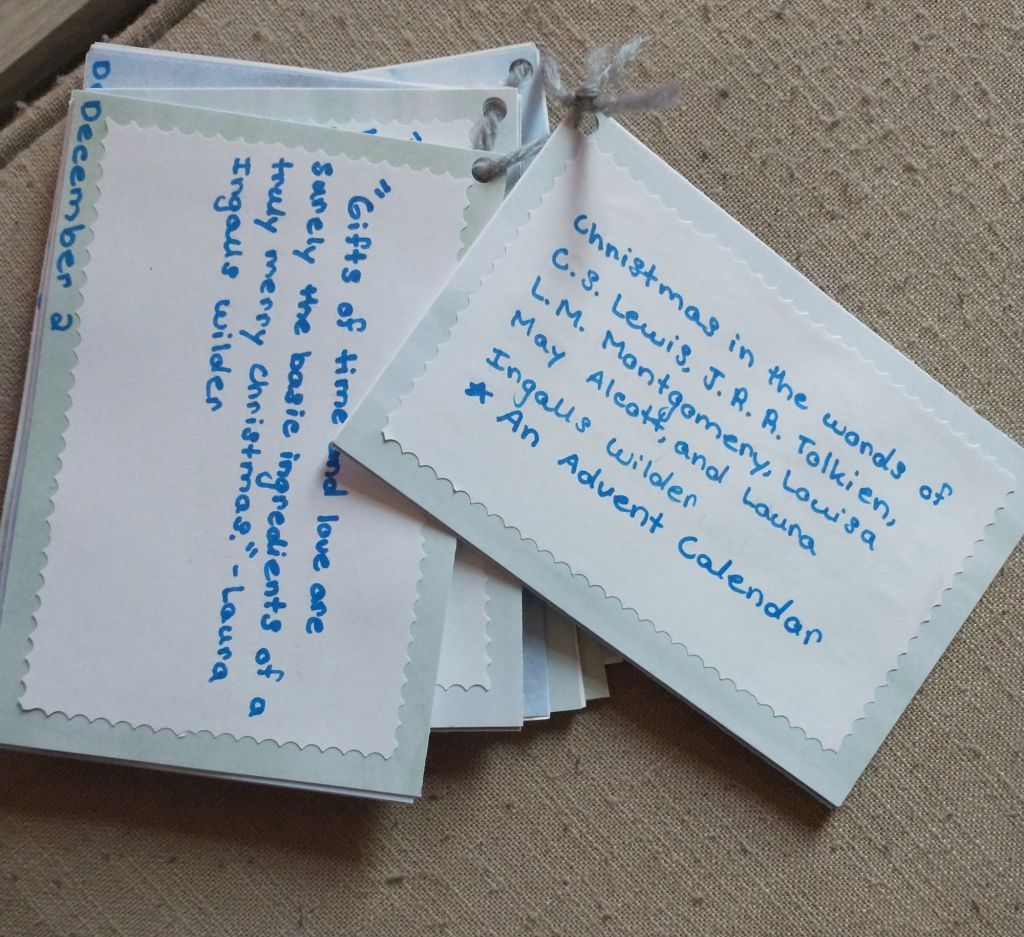 Christmas in the words of
C.S. Lewis, J.R.R. Tolkien,
L.M. Montgomery, Louisa
May Alcott, and Laura
Ingalls Wilder
* An Advent Calendar
December 2
"Gifts of time and love are
surely the basic ingredients of a
truly merry christmas." - Laura
Ingalls Wilder